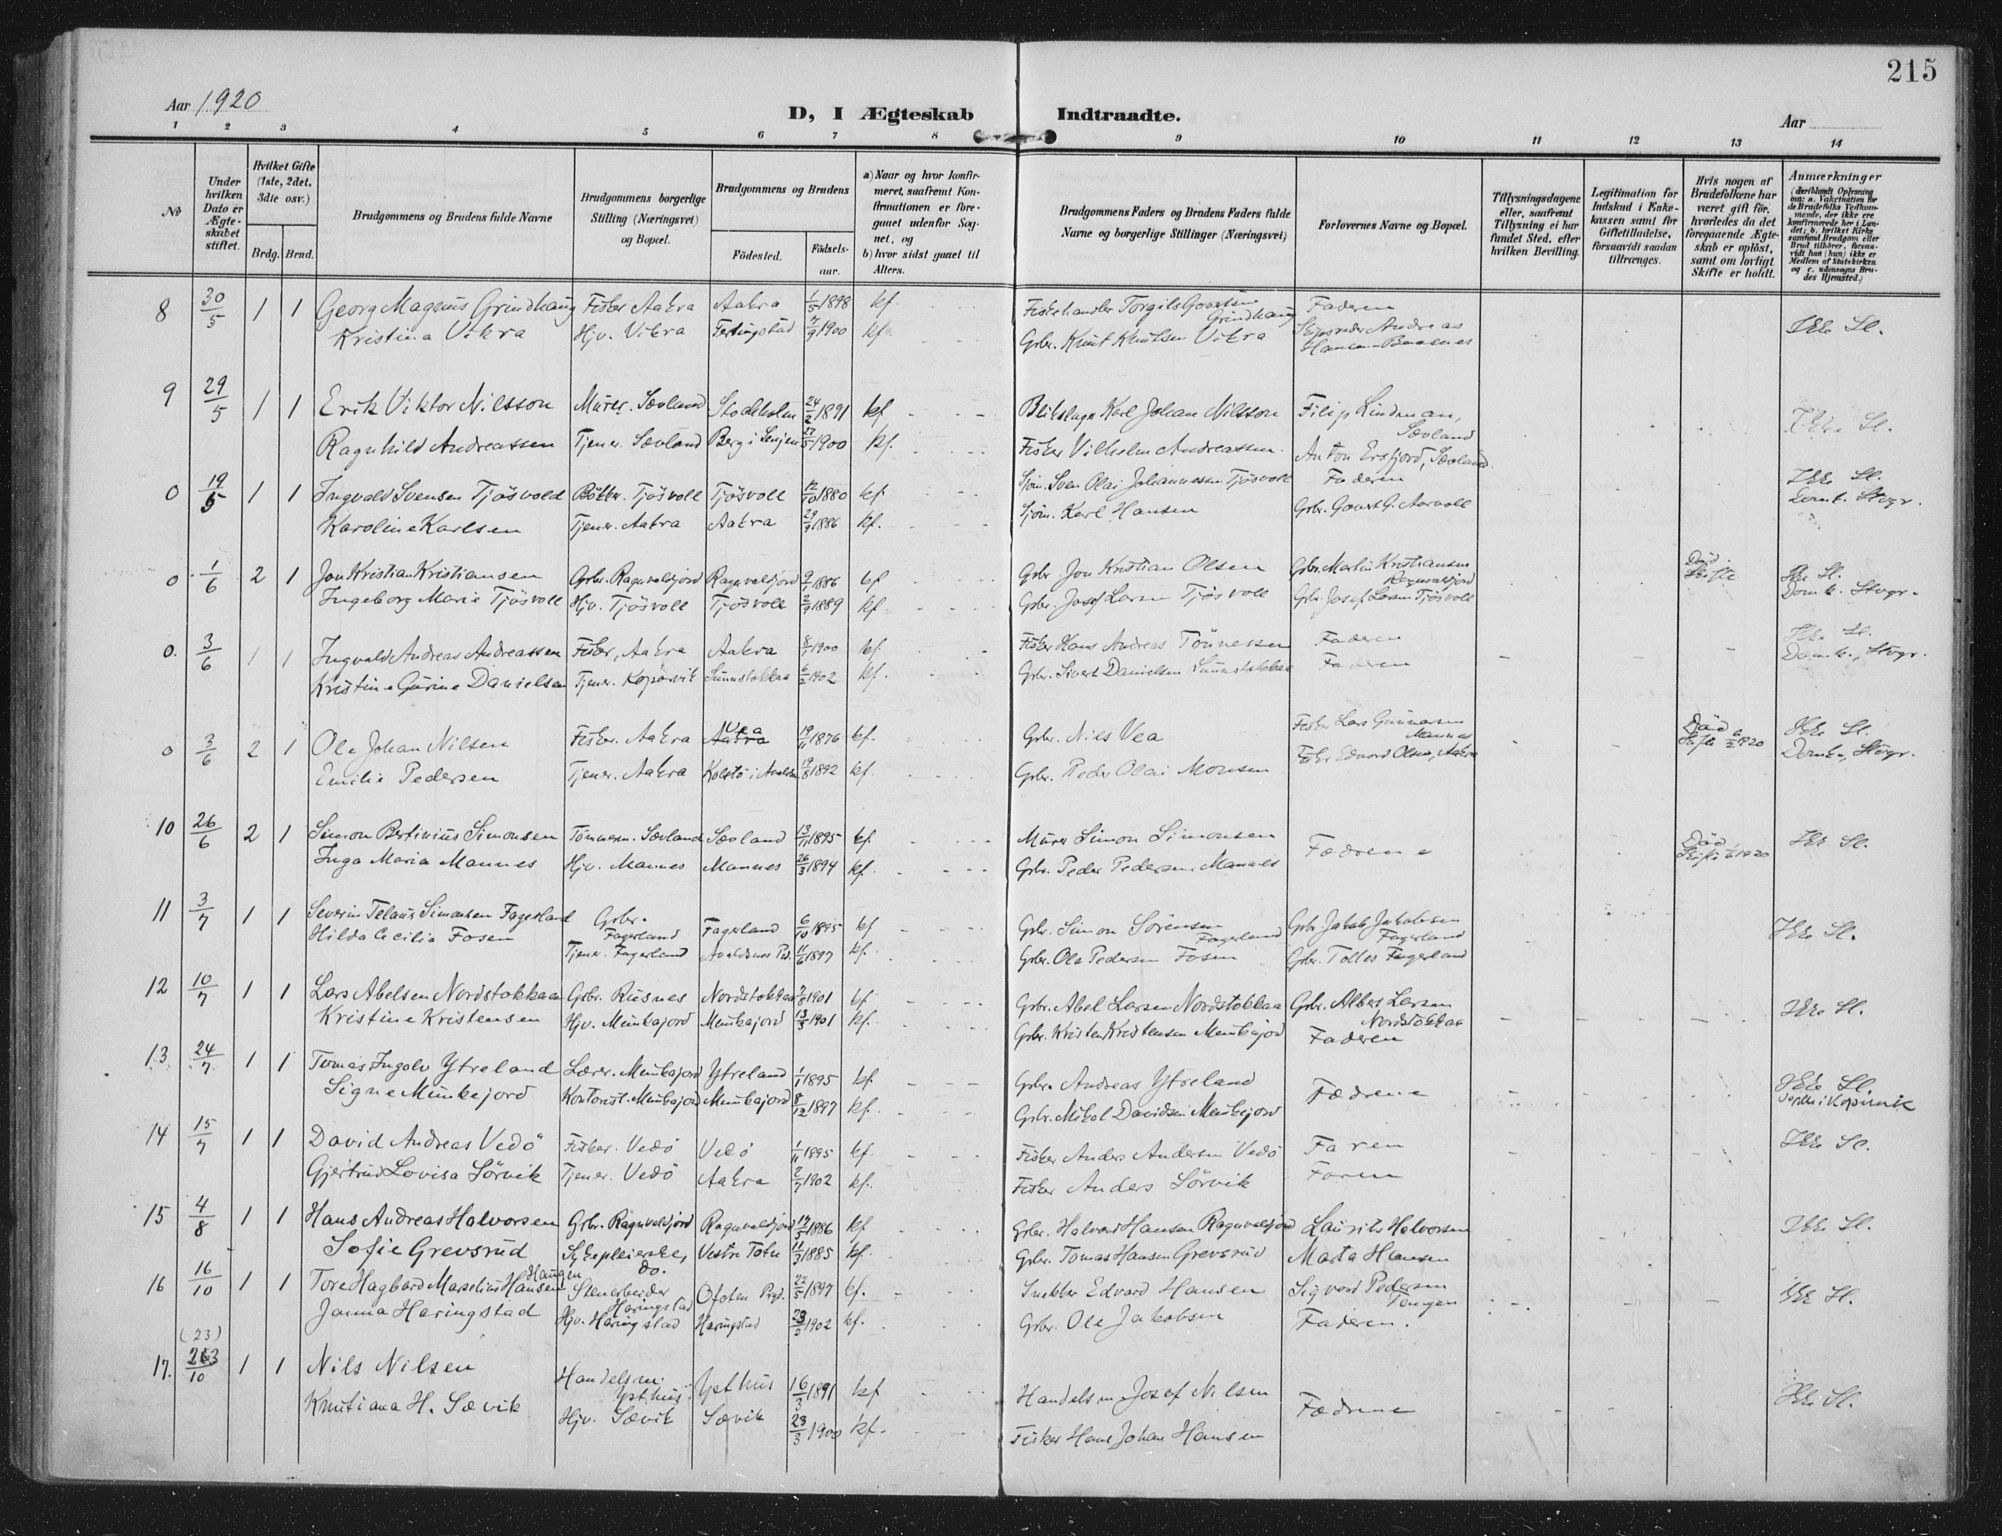 215
Aar 1920
D, I Ægteskab Indtraadte.
Aar
1 2 3 4 5 6 7 8 9 10 11 12 13 14
№
Under hvilken Dato er Ægteskabet stiftet.
Hvilket Gifte (1ste, 2det, 3die osv.)
Brdg. Brud.
Brudgommens og Brudens fulde Navne
Brudgommens borgerlige Stilling (Næringsvei) og Bopæl.
Brudgommens og Brudens
Födested. Födsels-aar.
a) Naar og hvor konfirmeret, saafremt Konfirmationen er foregaaet udenfor Sognet, og
b) hvor sidst gaaet til Alters.
Brudgommens Faders og Brudens Faders fulde Navne og borgerlige Stillinger (Næringsvei)
Forlovernes Navne og Bopæl.
Tillysningsdagene eller, saafremt Tillysning ei har fundet Sted, efter hvilken Bevilling.
Legitimation for Indskud i Enkekassen samt for Giftetilladelse, forsaavidt saadan tiltrænges.
Hvis nogen af Brudefolkene har været gift för, hvorledes da det foregaaende Ægteskab er oplöst, samt om lovligt Skifte er holdt.
Anmærkninger
8 30/5 1 1 Georg Magnus Grindhaug Fisker Aakra Aakra 1/5 1898 kf. Fiskehandler Torgils Govertsen Grindhaug Faderen
Kristina Vikra Hjv. Vikra Ferkingstad 7/9 1900 kf. Grbr. Knut Knutsen Vikra Andreas Hansen Ikke Sl.
9 29/5 1 1 Erik Viktor Nilsson Murer. Sævland Stockholm 24/2 1891 kf. Blikslager Karl Johan Nilsson Filip Lindman, Sævland
Ragnhild Andreassen Tjener. Sævland Berg i Senjen 27/5 1900 kf. Fisker Vilhelm Andreassen Anton Ersfjord, Sævland Ikke Sl.
0 19/5 1 1 Ingvald Svensen Tjösvold Bötker. Tjösvoll Tjösvoll 12/10 1880 kf. Sjöm. Sven Olai Johannessen Tjösvoll Faderen Ikke Sl.
Karoline Karlsen Tjener. Aakra Aakra 29/9 1886 kf. Sjöm. Karl Hansen Grbr. Govert G. Aarvoll Domk. Stvgr.
0 1/6 2 1 Jon Kristian Kristiansen Grbr. Ragnvaldsjord Ragnvaldsjord 9/1 1886 kf. Grbr. Jon Kristian Olsen Grbr. Martin Kristiansen Ragnvalsjord Död Skifte Ikke Sl.
Ingeborg Marie Tjösvoll Hjv. Tjösvoll Tjösvoll 2/9 1889 kf. Grbr. Josef Larsen Tjösvoll Grbr. Josef Larsen Tjösvoll Domk. Stvgr.
0. 3/6 1 1 Ingvald Andreas Andreassen Fisker, Aakra Aakra 8/1 1900 kf. Fisker Hans Andreas Tönnessen Faderen Ikke Sl.
Kristine Gurine Danielsen Tjener. Kopervik Sunnstokkaa 6/2 1902 kf. Grbr. Sivert Danielsen Sunnstokkaa Faderen Domk., Stvgr.
0 3/6 2 1 Ole Johan Nilsen Fisker. Aakra Vea 19/11 1876 kf. Grbr. Niels Vea Fisker Lars Gunnarsen Mannes Död Skifte 6/2 1920 Ikke Sl.
Emilie Pedersen Tjener. Aakra Kolstö i Avaldsn. 19/8 1892 kf. Grbr. Peder Olai Monsen Fisker Edvard Olsen, Aakra Domk., Stvgr.
10 26/6 2 1 Simon Bertinius Simonsen Tömmerm. Sævland Sævland 13/11 1895 kf. Murer Simon Simonsen Fædrene Död Skifte 1920 Ikke Sl.
Inga Maria Mannes Hjv. Mannes Mannes 26/3 1894 kf. Grbr. Peder Pedersen Mannes
11 3/7 1 1 Severin Telaus Simonsen Fagerland Grbr. Fagerland Fagerland 6/10 1895 kf Grbr. Simon Sörensen Fagerland Grbr. Jakob Jakobsen Fagerland
Hilda Cecilia Fosen Tjener. Fagerland Avaldsnes Pr. 11/6 1897 kf. Grbr. Ole Pedersen Fosen Grbr. Tolles Fagerland Ikke Sl.
12 10/7 1 1 Lars Abelsen Nordstokkaa Grbr. Risnes Nordstokkaa 7/8 1901 kf Grbr. Abel Larsen Nordstokkaa Grbr. Albert Larsen Nordstokkaa
Kristine Kristensen Hjv. Munkajord Munkajord 13/3 1901 kf. Grbr. Kristen Kristensen Munkajord Faderen Ikke Sl.
13. 24/7 1 1 Tomas Ingolv Ytreland Lærer. Munkajord Ytreland 1/1 1895 kf. Grbr. Andreas Ytreland Fædrene Ikke Sl.
Signe Munkejord Kontorist. Munkajord Munkajord 8/12 1897 kf. Grbr. Mikal Davidsen Munkejord i Kopervik
14 15/7 1 1 David Andreas Vedö Fisker. Vedö Vedö 1/11 1895 kf. Fisker Anders Andersen Vedö Faren Ikke Sl.
Gjertrud Lovisa Sörvik Tjener. Vedö Aakra 2/7 1902 kf. Fisker Anders Sörvik Faren
15 4/8 1 1 Hans Andreas Halvorsen Grbr. Ragnvaldsjord Ragnvaldsjord 17/5 1886 kf. Grbr. Halvard Hansen Ragnvalsjord Laurits Halvorsen Ikke Sl.
Sofie Grevsrud Sykepleierske, do. Vestre Toten 11/7 1885 kf. Grbr. Tomas Hansen Grevsrud Marta Hansen
16 16/10 1 1 Tore Hagbard Marselius Hansen Haugen Stenarbeider Haringstad Ofoten Prgd. 22/5 1897 kf. Snekker Edvard Hansen Sigvard Pedersen Ikke Sl.
Janna Haringstad Hjv. Haringstad Haringstad 23/2 1902 kf. Grbr. Ole Jakobsen Faderen.
17. (23) 23/10 1 1 Nils Nilsen Handelsm. Ypthus Ypthus 16/3 1891 kf Handelsm Josef Nilsen Fædrene Ikke Sl.
Kristiana H. Sævik Hjv. Sævik Sævik 23/3 1900 kf. Fisker Hans Johan Hansen